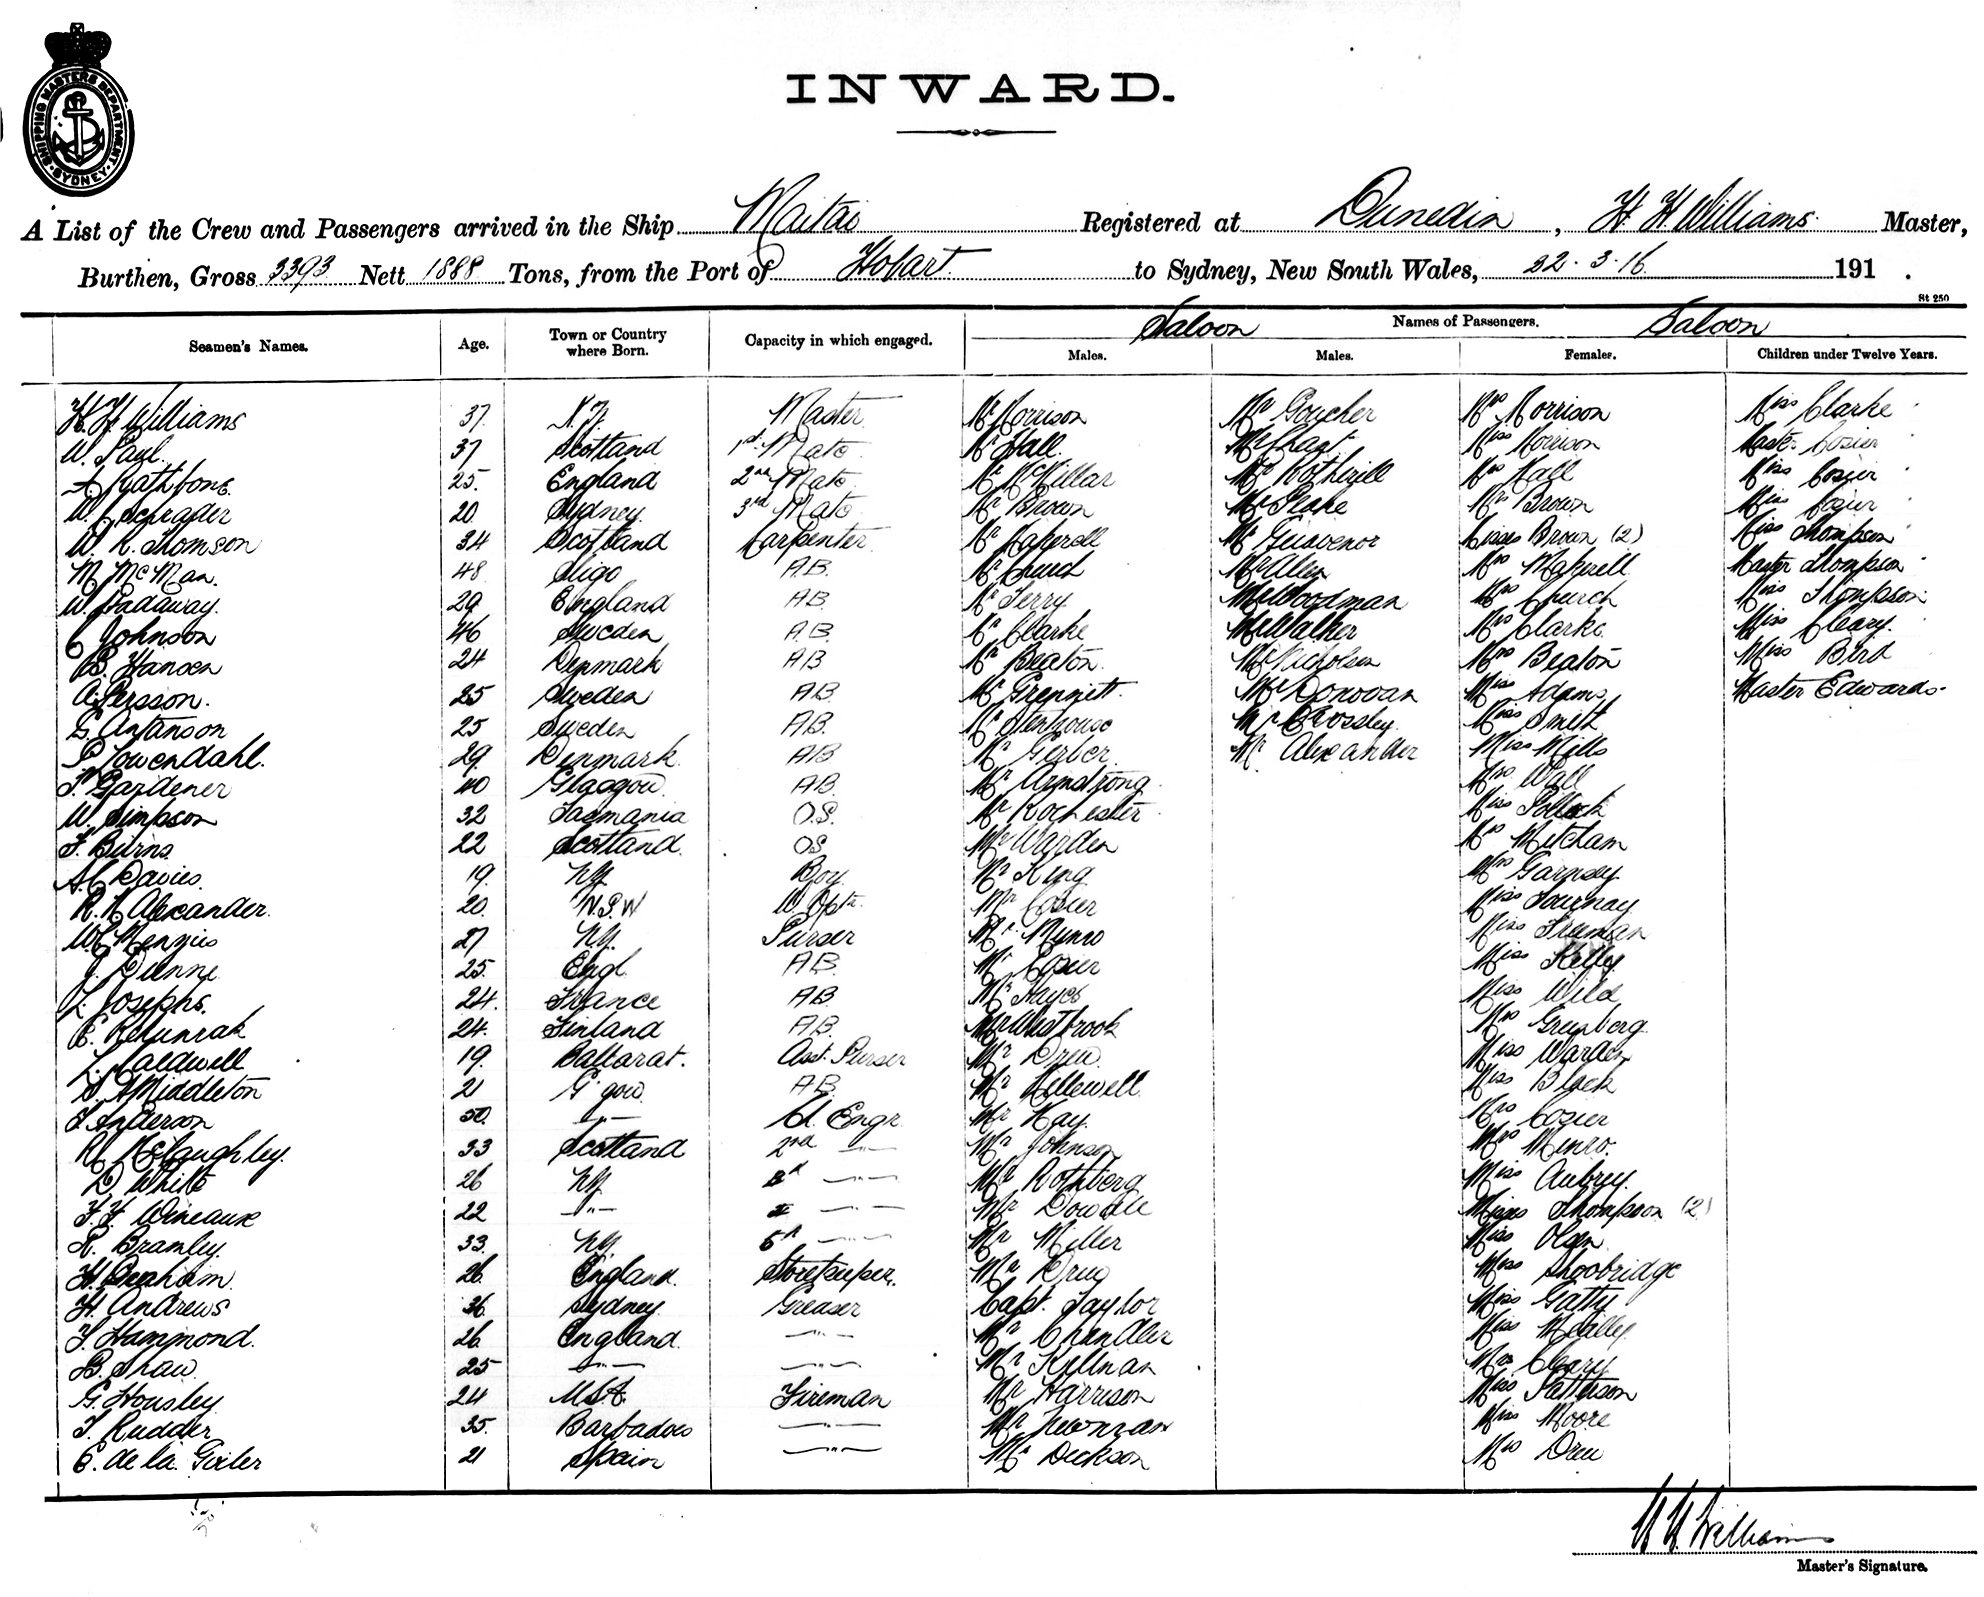 SHIPPING MASTERS DEPARTMENT
SYDNEY
INWARD.
A List of the Crew and Passengers arrived in the Ship Maitai Registered at Dunedin, H H Williams Master,
Burthen, Gross 3393 Nett 1888 Tons, from the Port of Hobart to Sydney, New South Wales, 22.3.16 191 .
St 250
Saloon Names of Passengers. Saloon
Seamen's Names. Age. Town or Country where Born. Capacity in which engaged. Males. Males. Females. Children under Twelve Years.
H. H Williams 37 N.Z. Master Mr Morrison Mr Goucher Mrs Morrison Miss Clarke
W. Paul 37 Scotland 1st Mate Mr Hall Mr Miss Morrison Master Cosier
A Rathbone 25 England 2nd Mate Mr McKillar Mr Mrs Hall Miss Cosier
W. Schrader 20 Sydney 3rd Mate Mr Brown Mr Mrs Brown Miss Cosier
W. R. Thomson 34 Scotland Carpenter Mr Mr Guavenor Misses Brown (2) Miss Thompson
M McMan. 48 Sligo A.B. Mr Church Mr Allen Mrs Master Thompson
W. Hadaway. 29 England A.B. Mr Terry Mr Woodman Mrs Church Miss Thompson
C Johnson 46 Sweden A.B. Mr Clarke Mr Walker Mrs Clarke Miss Cleary.
B. Hansen 24 Denmark AB Mr Beaton Mr Nicholson Mrs Beaton Miss Bird
A. Persson. 25 Sweden AB Mr Mr Donovan Miss Adams Master Edwards
S. Antanson 25 Sweden AB. Mr Stenhouse Mr Crossley Miss Smith
P Lowendahl. 29 Denmark AB Mr Gerber Mr Alexander Miss Mills
T. Gardener 40 Glasgow AB. Mr Armstrong Mrs Wall
W. Simpson 32 Tasmania O.S. Mr Rochester Miss Pollock
F. Burns 22 Scotland. OS Mr Warden Mrs Mitcham
A.C Davies. 19 NZ Boy Mr King Mrs Garnsey
R. N Alexander. 20 N.S.W W. Optr. Mr Cosier Miss Tournay
W. Menzies 27 NZ. Purser Mr Munro Miss Freeman
J. Dunne 25 Engl. AB. Mr Cosier Miss Kelly
L. Josephs. 24. France AB Mr Hayes Miss Wild
24. Finland A.B. Mr Westbrook Mrs Greenberg
L. Caldwell 19 Ballarat. Asst. Purser Mr Drew Miss Warden
S. A Middleton 21 G'gow A.B. Mr Kellewell Miss Black
T Anderson 50 —"— Ch. Engr. Mr Kay. Mrs Cosier
R. McClaughley. 33 Scotland 2nd —"— Mr Johnson Mrs Munro.
D White 26 NZ —"— Mr Rothberg Miss Aubrey.
F. F. Wineaux 22 —"— —"— Mr Dowdle Misses Thompson (2)
R. Bramley. 33 NZ. 5th —"— Mr Miller Miss Olsen
H. Graham. 26 England. Storekeeper. Mr Drew Miss Shoobridge
H. Andrews 36 Sydney. Greaser Capt. Taylor Miss Gatty
F. Hammond. 26 England. —"— Mr Chandler Miss
B. Shaw 25 —"— —"— Mr Killman Mrs Cleary
G. Housley 24 U.S.A. Fireman Mr Harrison Miss Patterson
T. Rudder 35. Barbadoes —"— Mr Newman Miss Moore
E. de la Gixler 21 Spain —"— Mr Dickson Mrs Drew
H. H. Williams
Master's Signature.